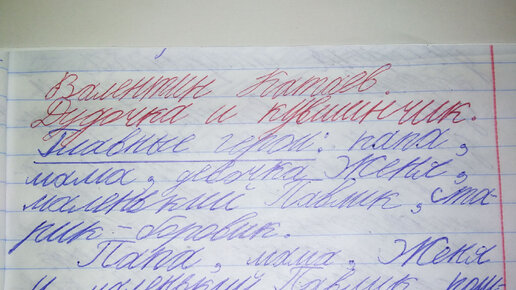 Валентин Катаев.
Дудочка и кувшинчик.
Главные герои: папа,
мама, девочка Женя,
маленький Павлик, ста-
рик-боровик.
Папа, мама, Женя
и маленький Павлик пош-